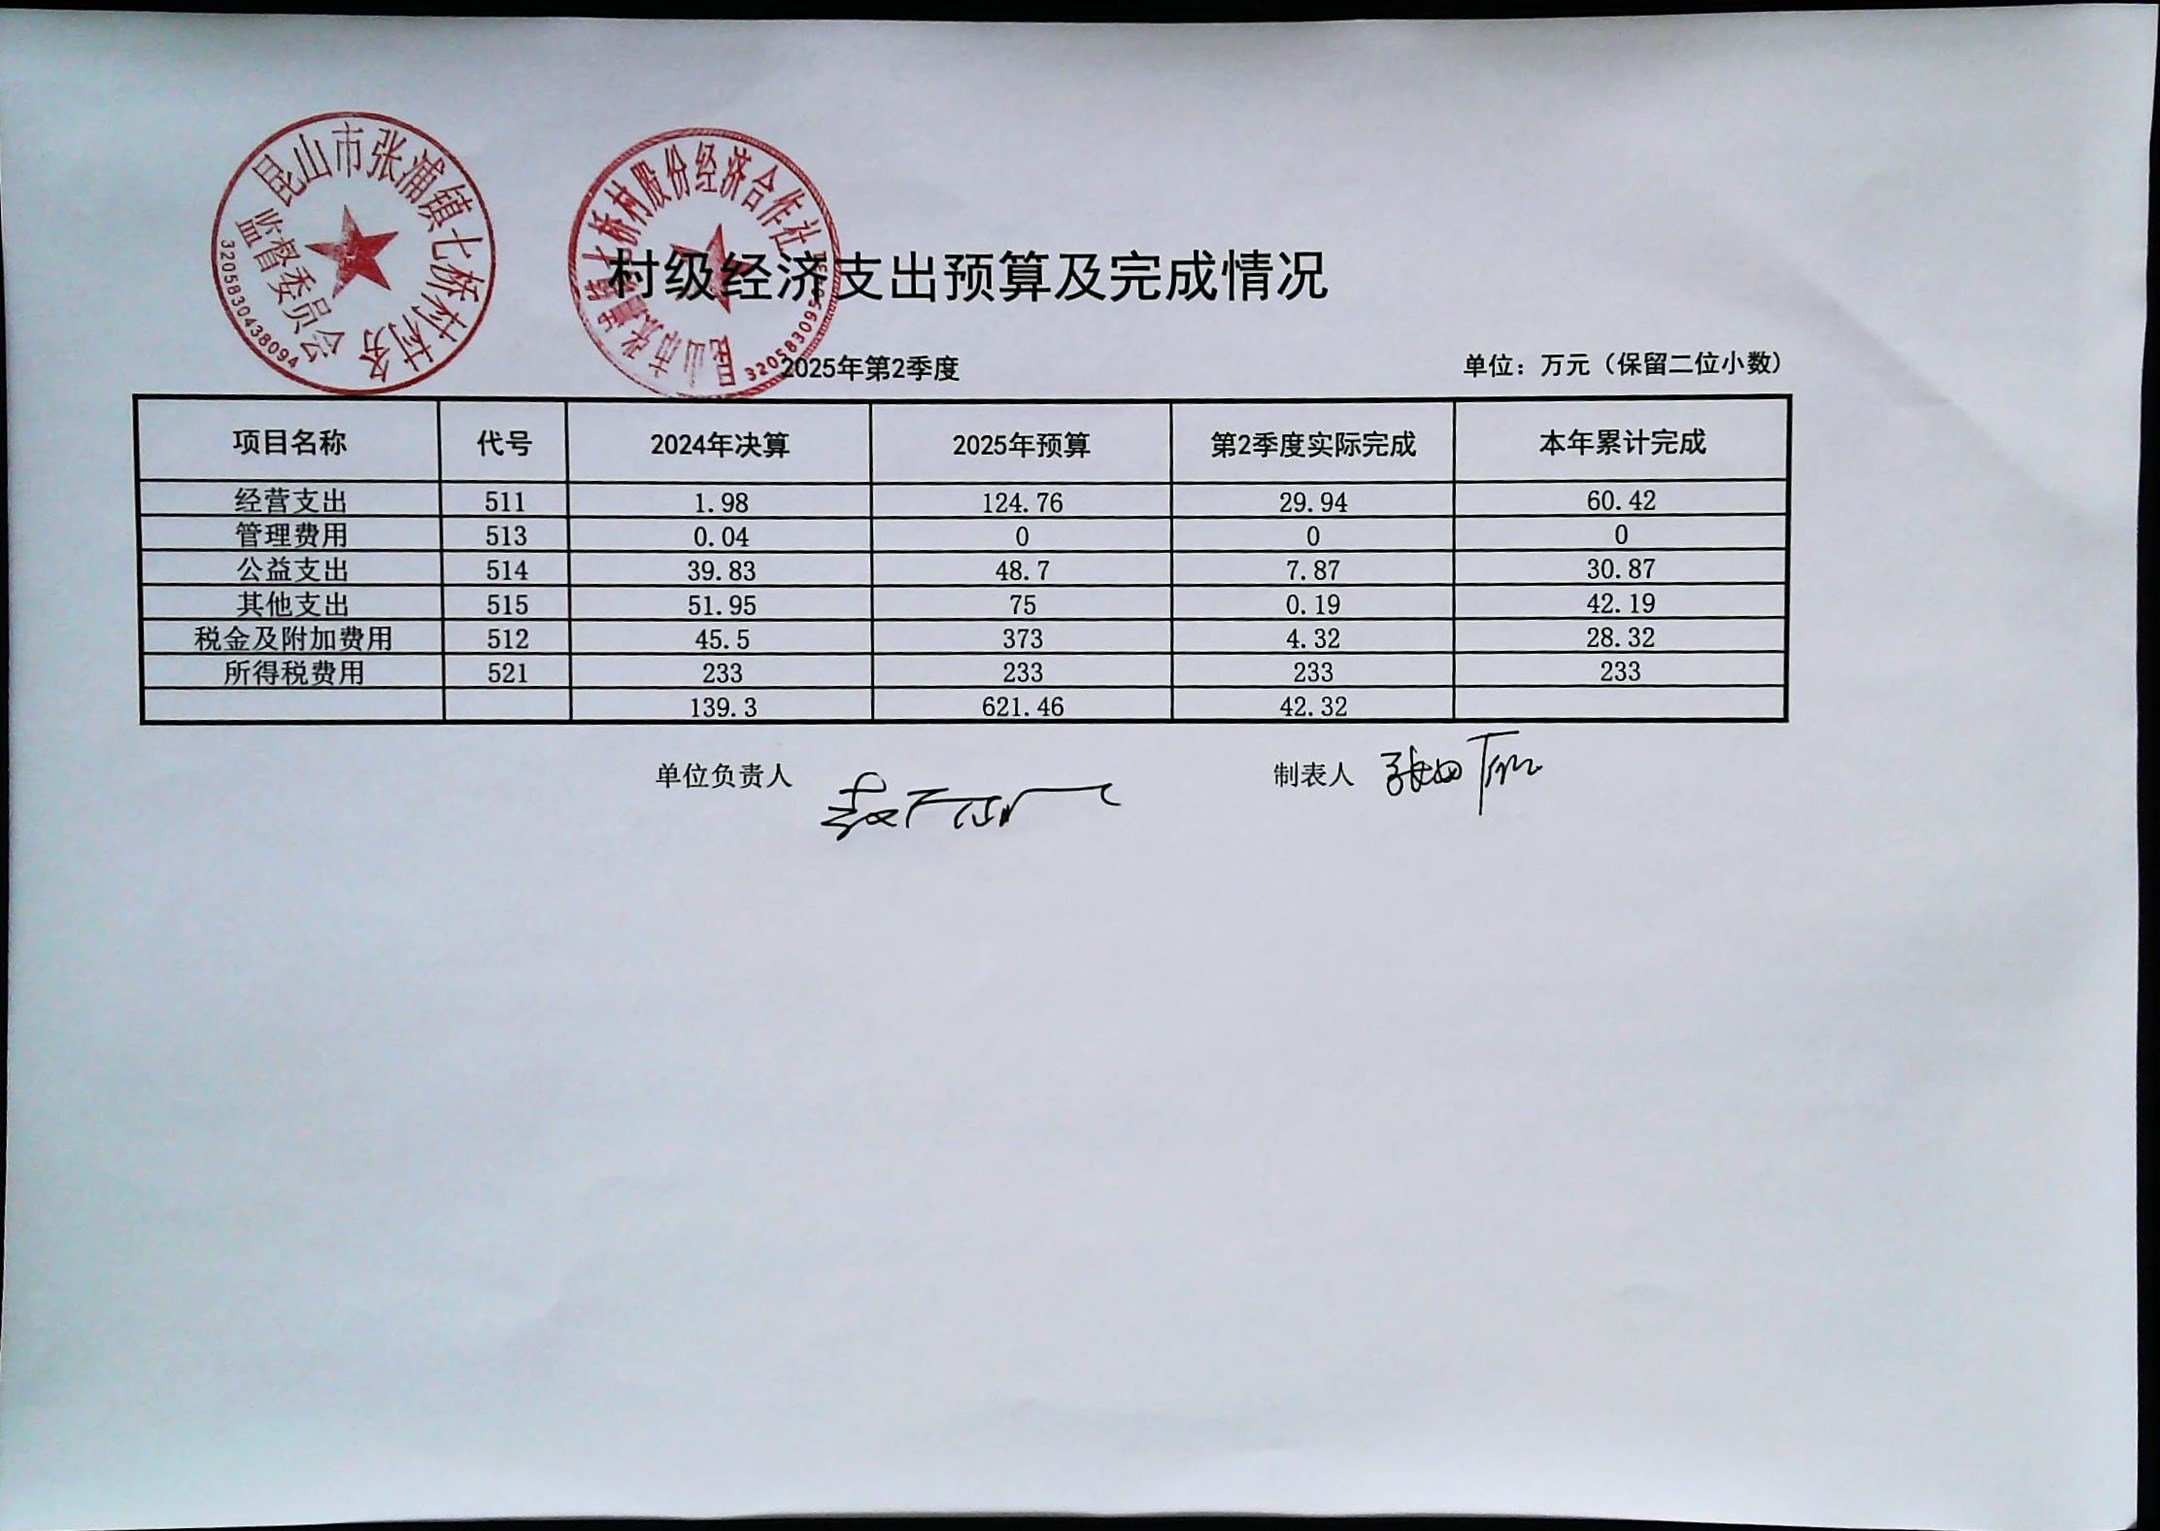 昆山市张浦镇七桥村村务
监督委员会
3205830438094
昆山市张浦镇七桥村股份经济合作社
村级经济支出预算及完成情况
2025年第2季度 单位：万元（保留二位小数）
项目名称 代号 2024年决算 2025年预算 第2季度实际完成 本年累计完成
经营支出 511 1.98 124.76 29.94 60.42
管理费用 513 0.04 0 0 0
公益支出 514 39.83 48.7 7.87 30.87
其他支出 515 51.95 75 0.19 42.19
税金及附加费用 512 45.5 373 4.32 28.32
所得税费用 521 233 233 233 233
139.3 621.46 42.32
单位负责人 制表人